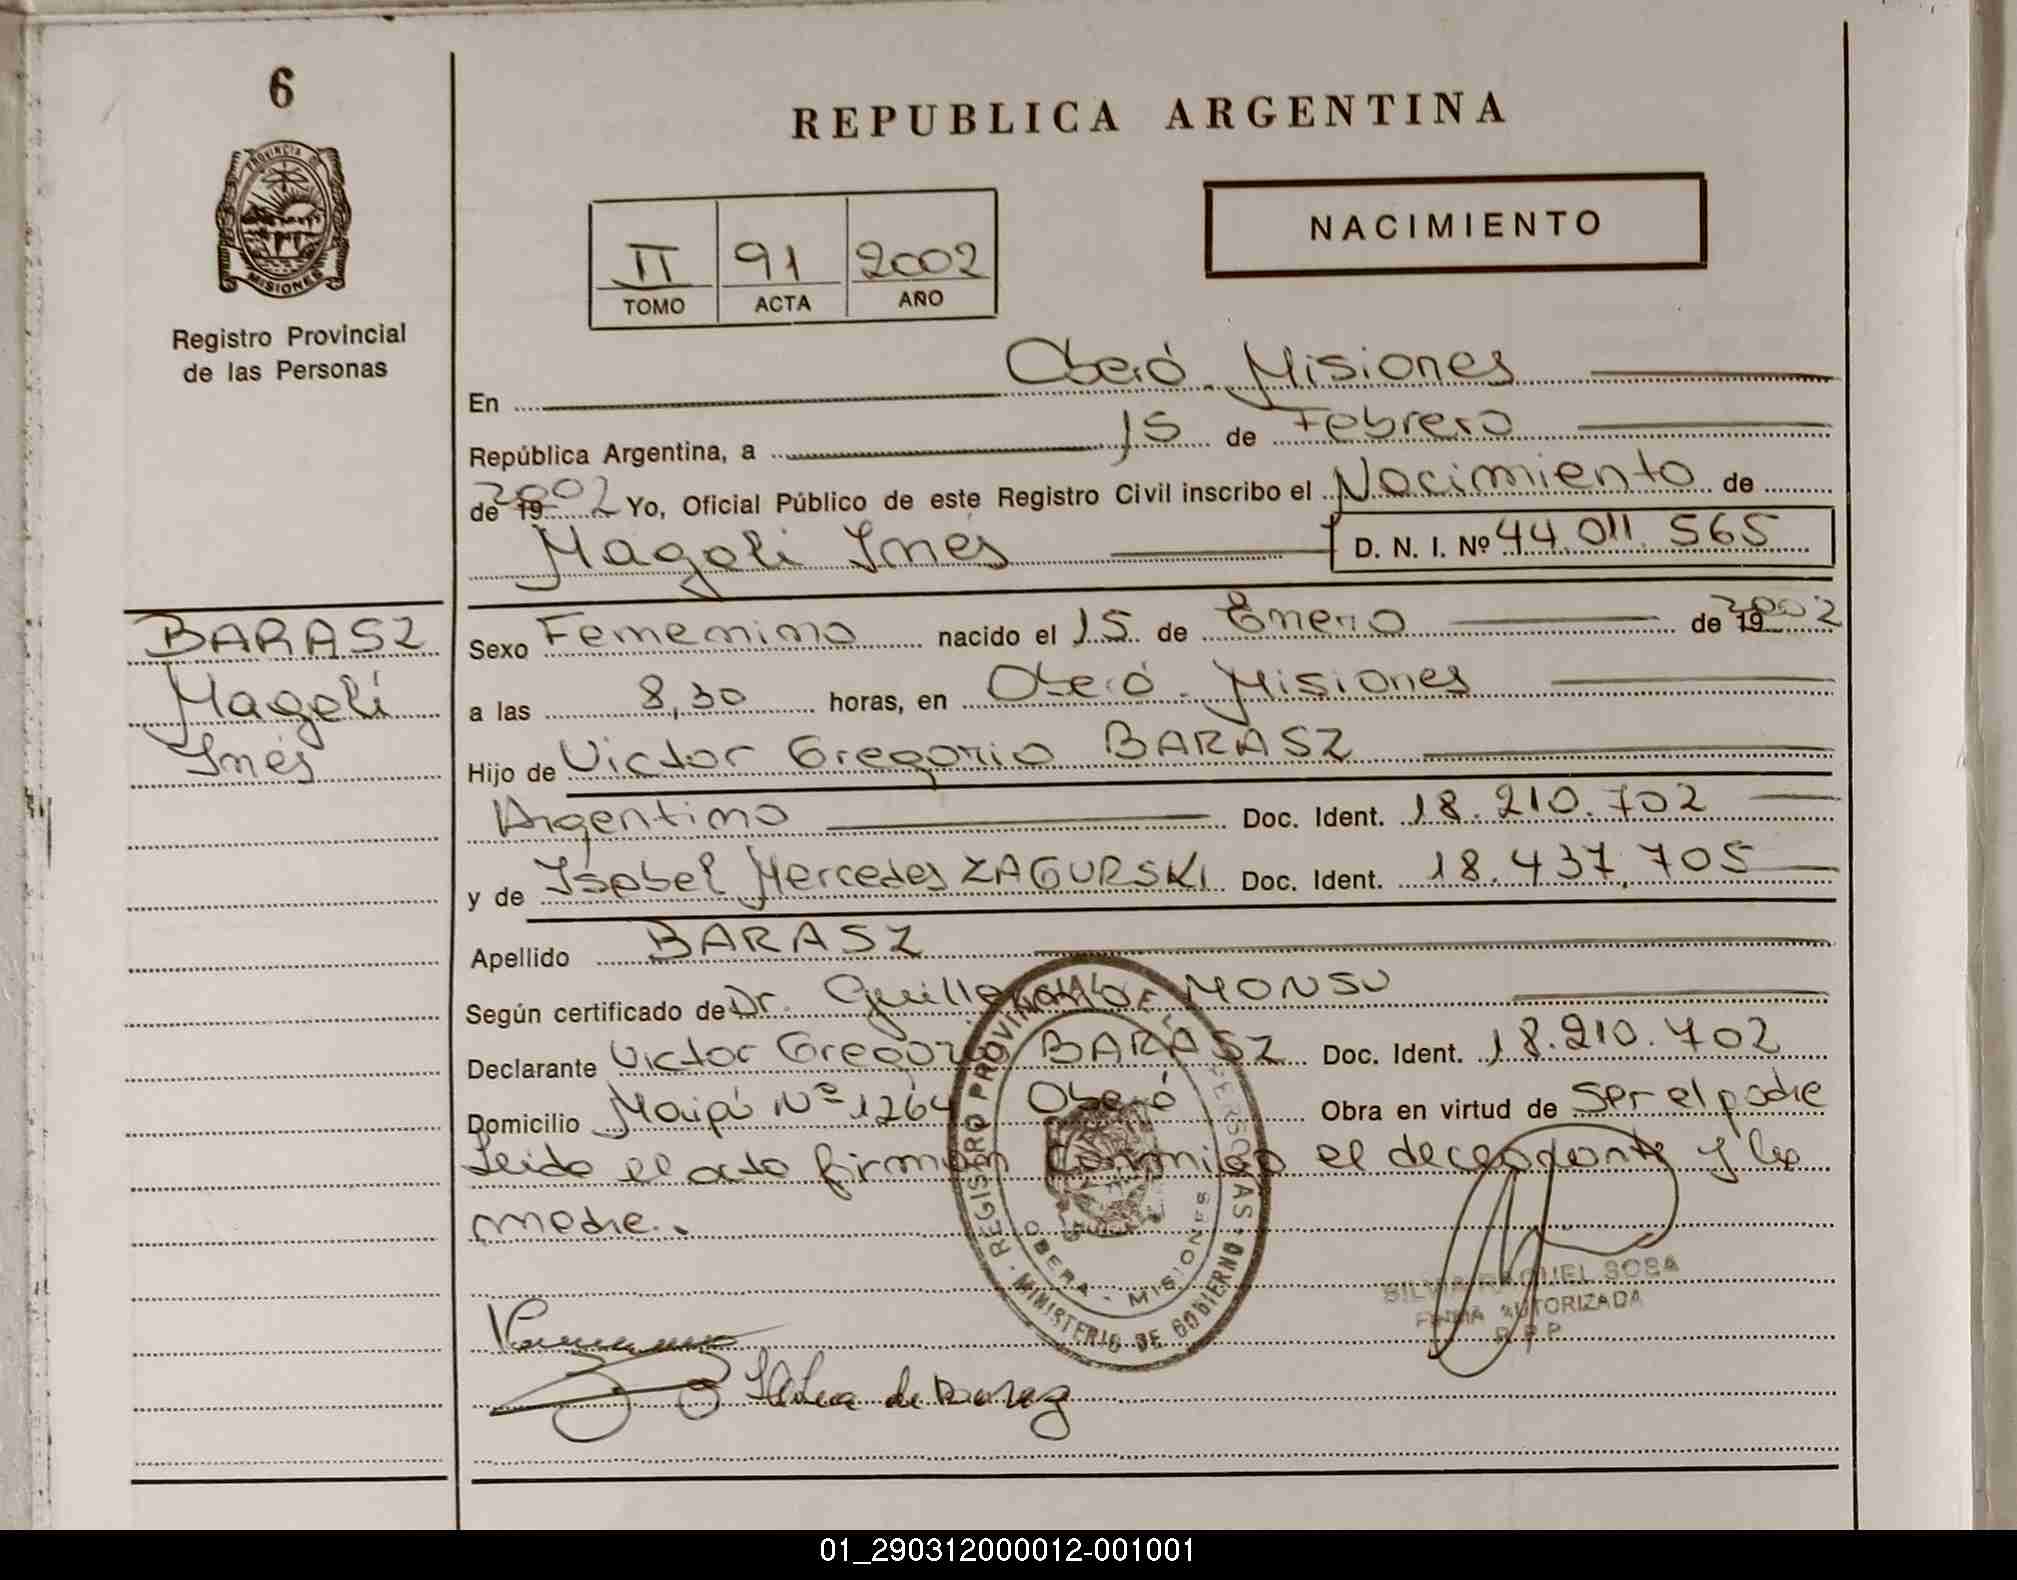 6
PROVINCIA DE
MISIONES
Registro Provincial
de las Personas
REPUBLICA ARGENTINA
NACIMIENTO
II 91 2002
TOMO ACTA AÑO
En Oberá - Misiones
República Argentina, a 15 de Febrero
de 19 2002 Yo, Oficial Público de este Registro Civil inscribo el Nacimiento de
Magali Inés D. N. I. Nº 44.011.565
BARASZ
Magalí
Inés
Sexo Femenino nacido el 15 de Enero de 19 2002
a las 8,30 horas, en Oberá - Misiones
Hijo de Victor Gregorio BARASZ
Argentino Doc. Ident. 18.210.702
y de Isabel Mercedes ZAGURSKI Doc. Ident. 18.437.705
Apellido BARASZ
Según certificado de Dr. Guillermo MONSU
Declarante Victor Gregorio BARASZ Doc. Ident. 18.210.702
Domicilio Maipú Nº 1264 Oberá Obra en virtud de ser el padre
Leida el acta firman conmigo el declarante y la
madre.
REGISTRO PROVINCIAL DE LAS PERSONAS
OBERA - MISIONES
MINISTERIO DE GOBIERNO
SILVIA RAQUEL SOSA
FIRMA AUTORIZADA
R.P.P.
de Barasz
01_290312000012-001001